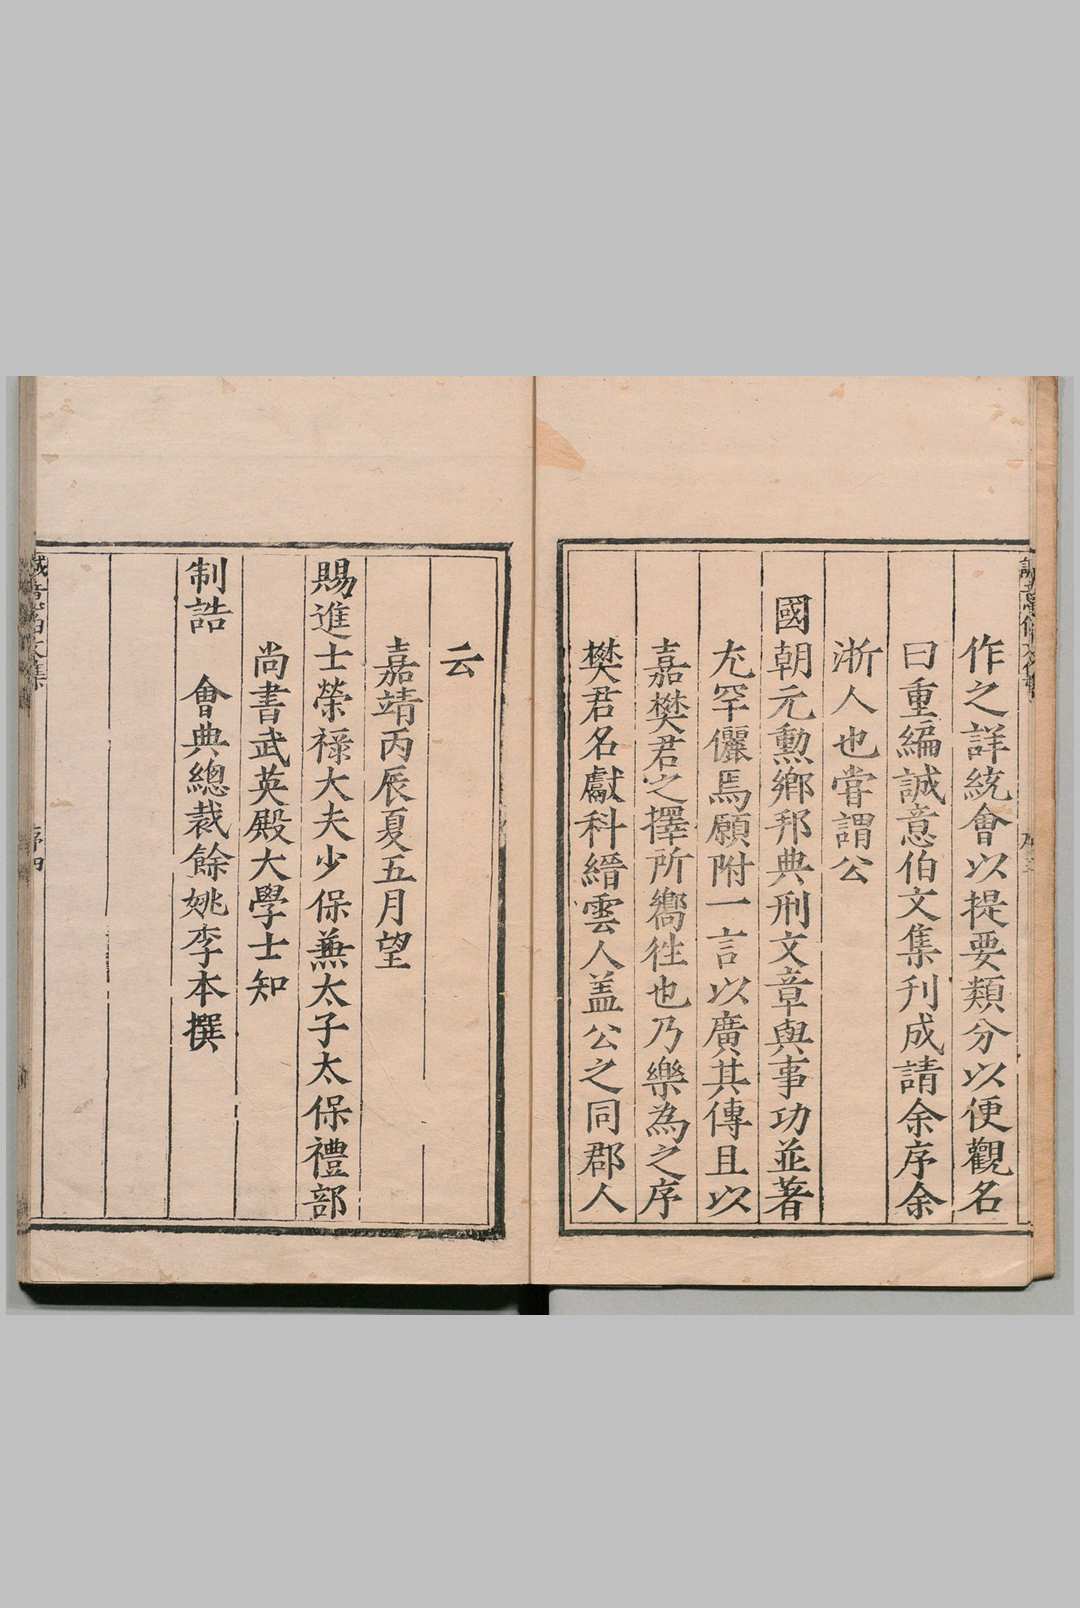 作之詳統會以提要類分以便觀名
曰重編誠意伯文集刋成請余序余
浙人也嘗謂公
國朝元勲鄉邦典刑文章與事功並著
尤罕儷焉願附一言以廣其傳且以
嘉樊君之擇所嚮往也乃樂為之序
樊君名獻科縉雲人盖公之同郡人
云
嘉靖丙辰夏五月望
賜進士榮祿大夫少保兼太子太保禮部
尚書武英殿大學士知
制誥 會典總裁餘姚李本撰
序四